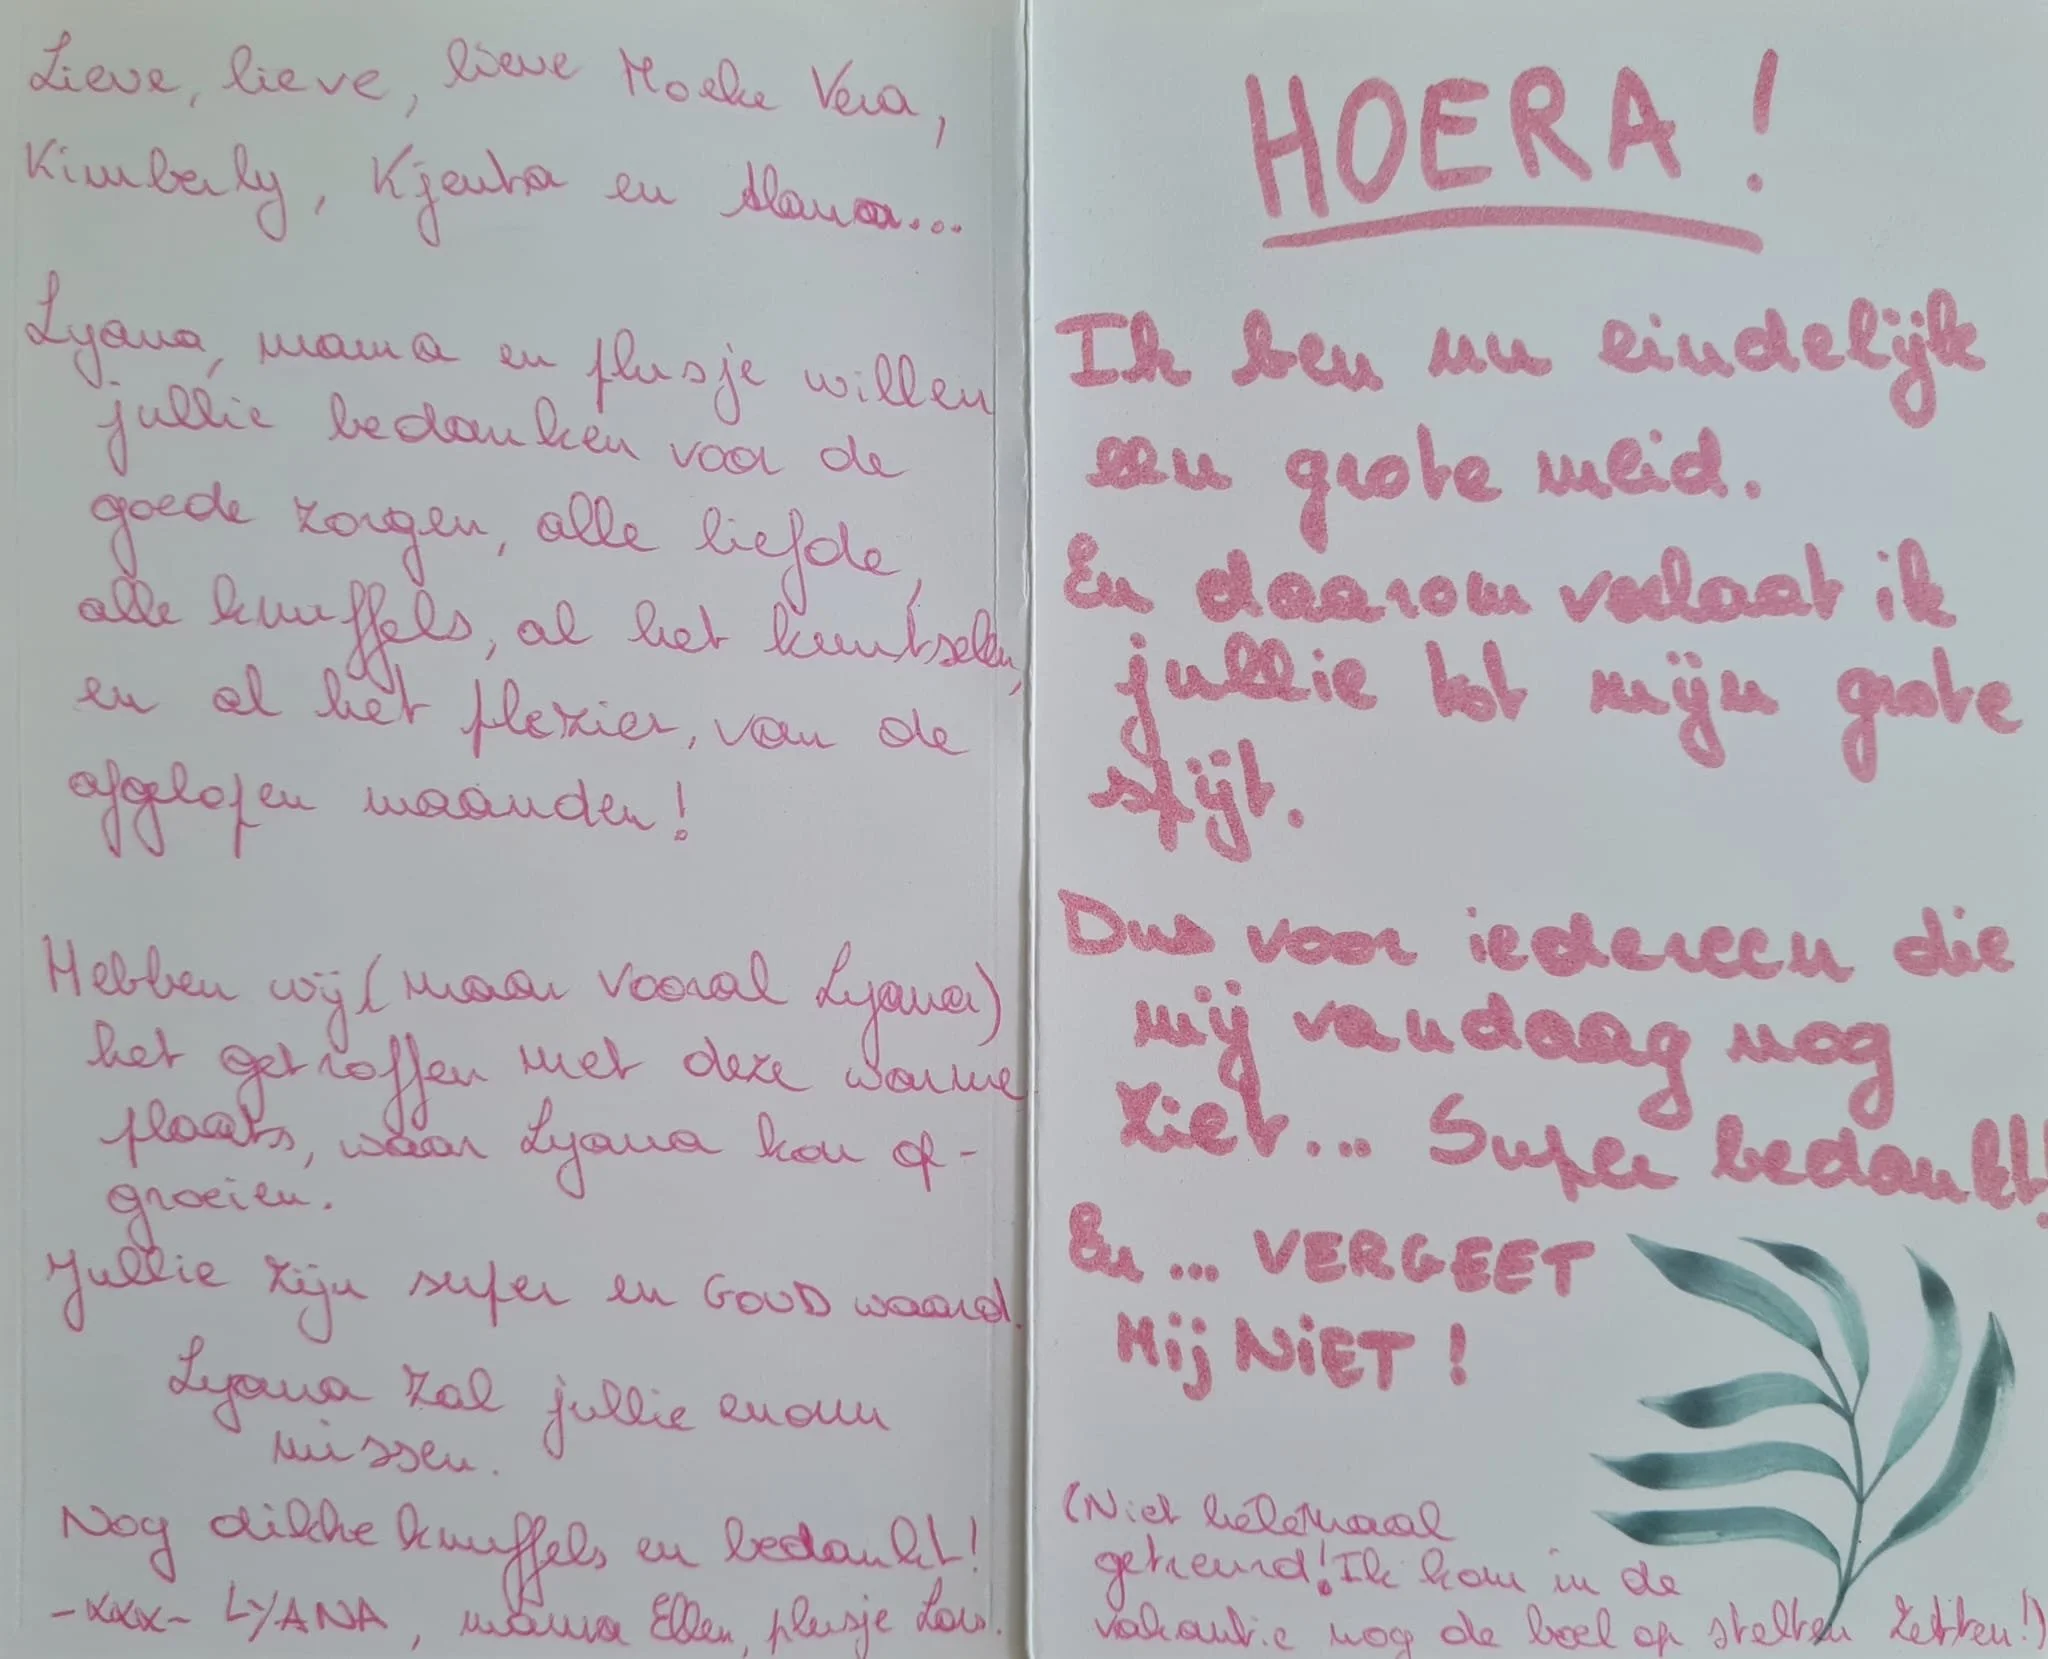 Lieve, lieve, lieve Moeke Vera,
Kimberly, Kjenta en Alana...
Lyana, mama en plusje willen
jullie bedanken voor de
goede zorgen, alle liefde,
alle knuffels, al het knutselen,
en al het plezier, van de
afgelopen maanden!
Hebben wij (maar vooral Lyana)
het getroffen met deze warme
plaats, waar Lyana kon op-
groeien.
Jullie zijn super en GOUD waard.
Lyana zal jullie enorm
missen.
Nog dikke knuffels en bedankt!
-xxx- LYANA, mama Ellen, plusje Lars.
HOERA!
Ik ben nu eindelijk
een grote meid.
En daarom verlaat ik
jullie tot mijn grote
spijt.
Dus voor iedereen die
mij vandaag nog
ziet... Super bedankt!
En ... VERGEET
Mij NiET!
(Niet helemaal
getreurd! Ik kom in de
vakantie nog de boel op stelten zetten!)